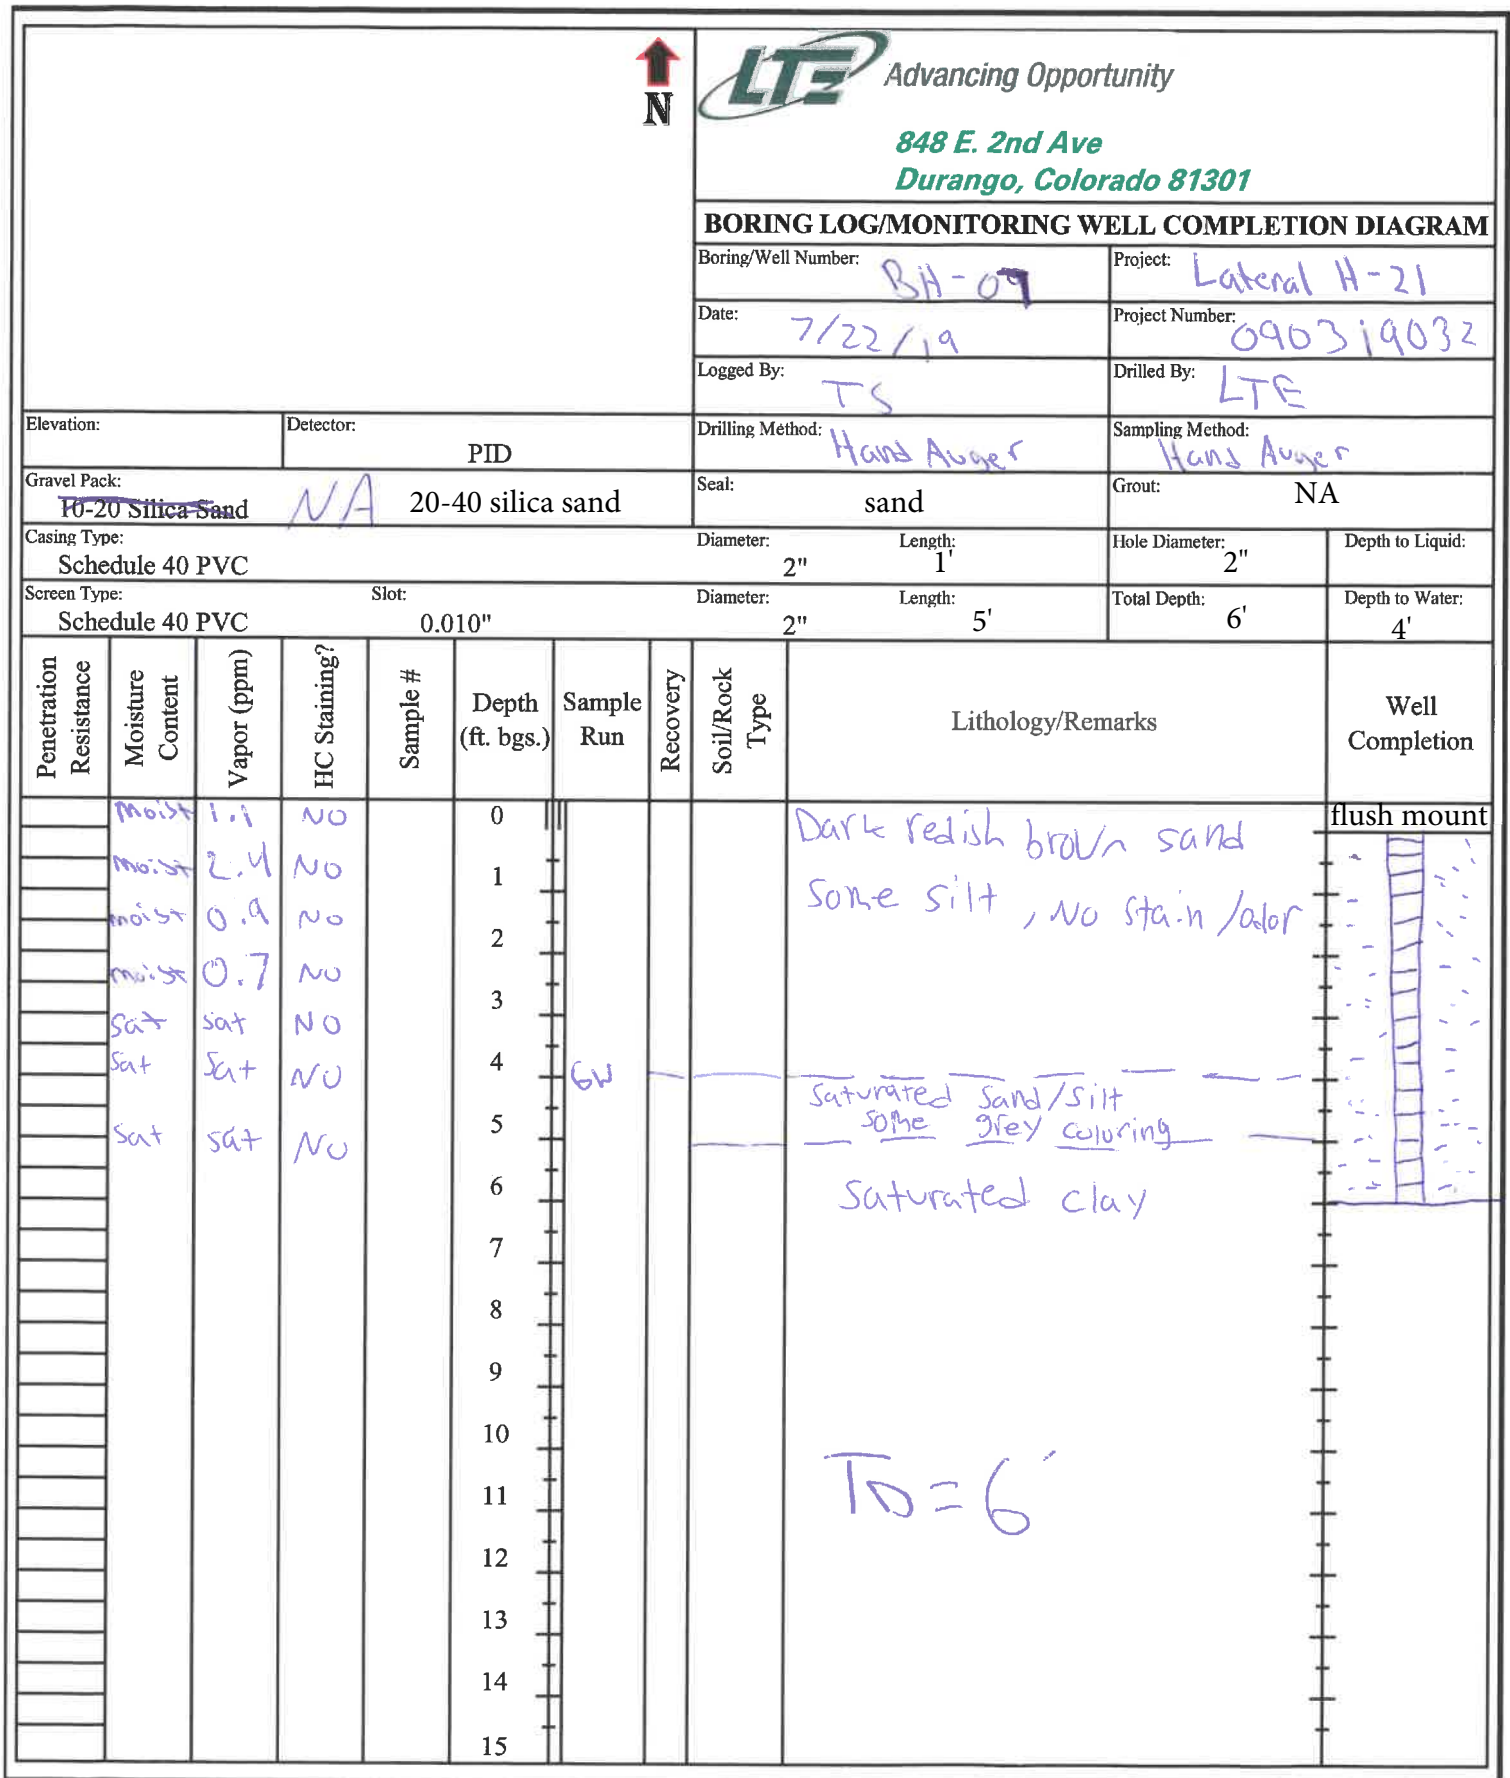 N
LTE Advancing Opportunity
848 E. 2nd Ave
Durango, Colorado 81301
BORING LOG/MONITORING WELL COMPLETION DIAGRAM
Boring/Well Number: BH-09
Project: Lateral H-21
Date: 7/22/19
Project Number: 090319032
Logged By: TS
Drilled By: LTE
Elevation:
Detector: PID
Drilling Method: Hand Auger
Sampling Method: Hand Auger
Gravel Pack: 10-20 Silica Sand NA 20-40 silica sand
Seal: sand
Grout: NA
Casing Type: Schedule 40 PVC
Diameter: 2"
Length: 1'
Hole Diameter: 2"
Depth to Liquid:
Screen Type: Schedule 40 PVC
Slot: 0.010"
Diameter: 2"
Length: 5'
Total Depth: 6'
Depth to Water: 4'
Penetration Resistance
Moisture Content
Vapor (ppm)
HC Staining?
Sample #
Depth (ft. bgs.)
Sample Run
Recovery
Soil/Rock Type
Lithology/Remarks
Well Completion
moist 1.1 NO 0 Dark redish brown sand flush mount
moist 2.4 NO 1 Some silt, No stain/odor
moist 0.9 NO 2
moist 0.7 NO 3
sat sat NO
Sat Sat NO 4 GW
Saturated Sand/Silt
some grey coloring
Sat sat NO 5
6 Saturated clay
7
8
9
10
11 TD = 6'
12
13
14
15